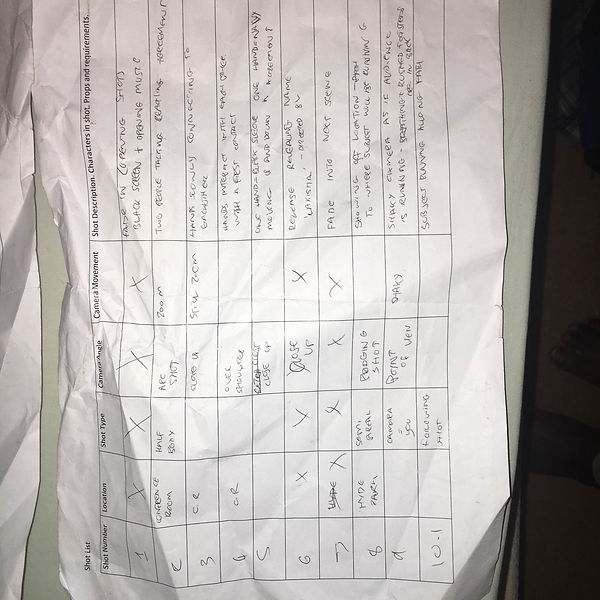 Shot List
Shot Number Location Shot Type Camera Angle Camera Movement Shot Description. Characters in shot. Props and requirements.
1 X X X X FADE IN OPENING SHOTS
BLACK SCREEN + OPENING MUSIC
2 CONFERENCE HALF ARC ZOOM TWO PEOPLE TALKING AGREEMENT
ROOM BODY SHOT
3 C.R CLOSE UP STILL ZOOM HANDS SLOWLY CONNECTING TO
EACHOTHER
4 C.R OVER HANDS INTERACT WITH EACH OTHER
SHOULDER WITH A FIRST CONTACT
5 CLOSE UP ONE HAND = BLACK SLEEVE ONE HAND = NAVY
MOVING UP AND DOWN AGREEMENT
6 X X CLOSE X RELEASE REVEALING NAME
UP - DIRECTED BY
7 HYDE X X X X FADE INTO NEXT SCENE
8 HYDE SEMI SHOT SHOWING OFF LOCATION - PATH
PARK TO WHERE SUBJECT WILL BE RUNNING
9 CAMERA POINT SHAKY SHAKY CAMERA AS IF AUDIENCE
= OF VEIW IS RUNNING - BREATHING + RUSHED FOOTSTEPS
YOU
10.1 FOLLOWING SUBJECT RUNNING ALONG PATH
SHOT